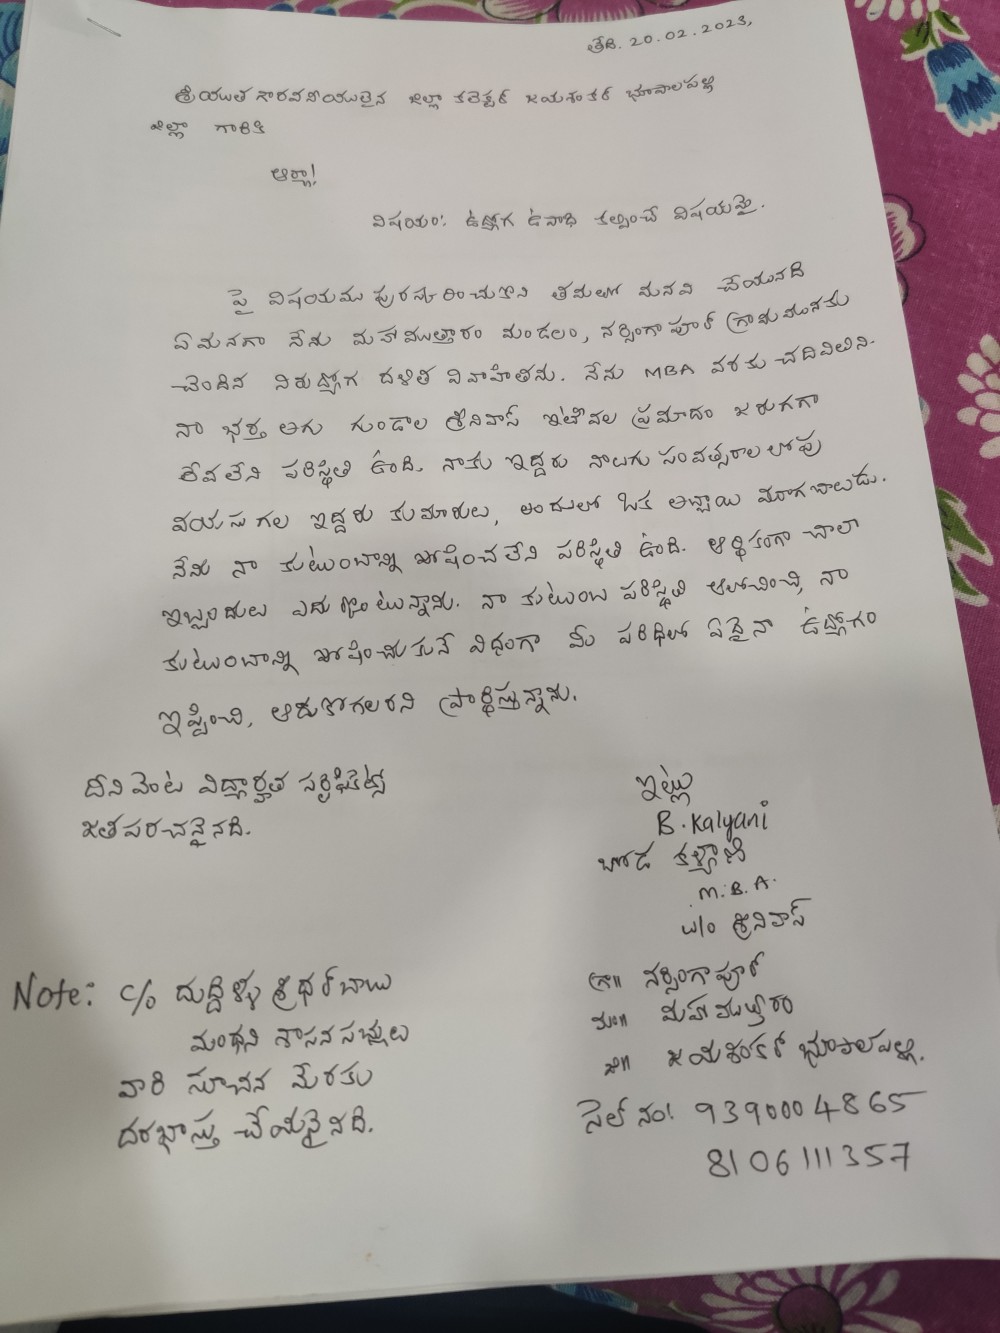 తేది. 20.02.2023,
శ్రీయుత గౌరవనీయులైన జిల్లా కలెక్టర్ జయశంకర్ భూపాలపల్లి
జిల్లా గారికి
ఆర్యా!
విషయం: ఉద్యోగ ఉపాధి కల్పించే విషయమై.
పై విషయము పురస్కరించుకొని తమలో మనవి చేయునది
ఏమనగా నేను మహాముత్తారం మండలం, నర్సింగాపూర్ గ్రామమునకు
చెందిన నిరుద్యోగ దళిత వివాహితను. నేను MBA వరకు చదివితిని.
నా భర్త అగు గుండాల శ్రీనివాస్ ఇటీవల ప్రమాదం జరుగగా
లేవలేని పరిస్థితి ఉంది. నాకు ఇద్దరు నాలుగు సంవత్సరాలలోపు
వయసుగల ఇద్దరు కుమారులు, అందులో ఒక అబ్బాయి వికలాగబాలుడు.
నేను నా కుటుంబాన్ని పోషించలేని పరిస్థితి ఉంది. ఆర్థికంగా చాలా
ఇబ్బందులు ఎదుర్కొంటున్నాను. నా కుటుంబ పరిస్థితి ఆలోచించి, నా
కుటుంబాన్ని పోషించుకునే విధంగా మీ పరిధిలో ఏదైనా ఉద్యోగం
ఇప్పించి, ఆదుకోగలరని ప్రార్థిస్తున్నాను.
దీని వెంట విద్యార్హత సర్టిఫికెట్స్
జతపరచనైనది.
ఇట్లు
B. Kalyani
బోడ కళ్యాణి
M.B.A.
w/o శ్రీనివాస్
గ్రా॥ నర్సింగాపూర్
మం॥ మహాముత్తారం
జి॥ జయశంకర్ భూపాలపల్లి.
సెల్ నం! 9390004865
8106111357
Note: c/o దుద్దిళ్ళ శ్రీధర్ బాబు
మంథని శాసన సభ్యులు
వారి సూచన మేరకు
దరఖాస్తు చేయనైనది.